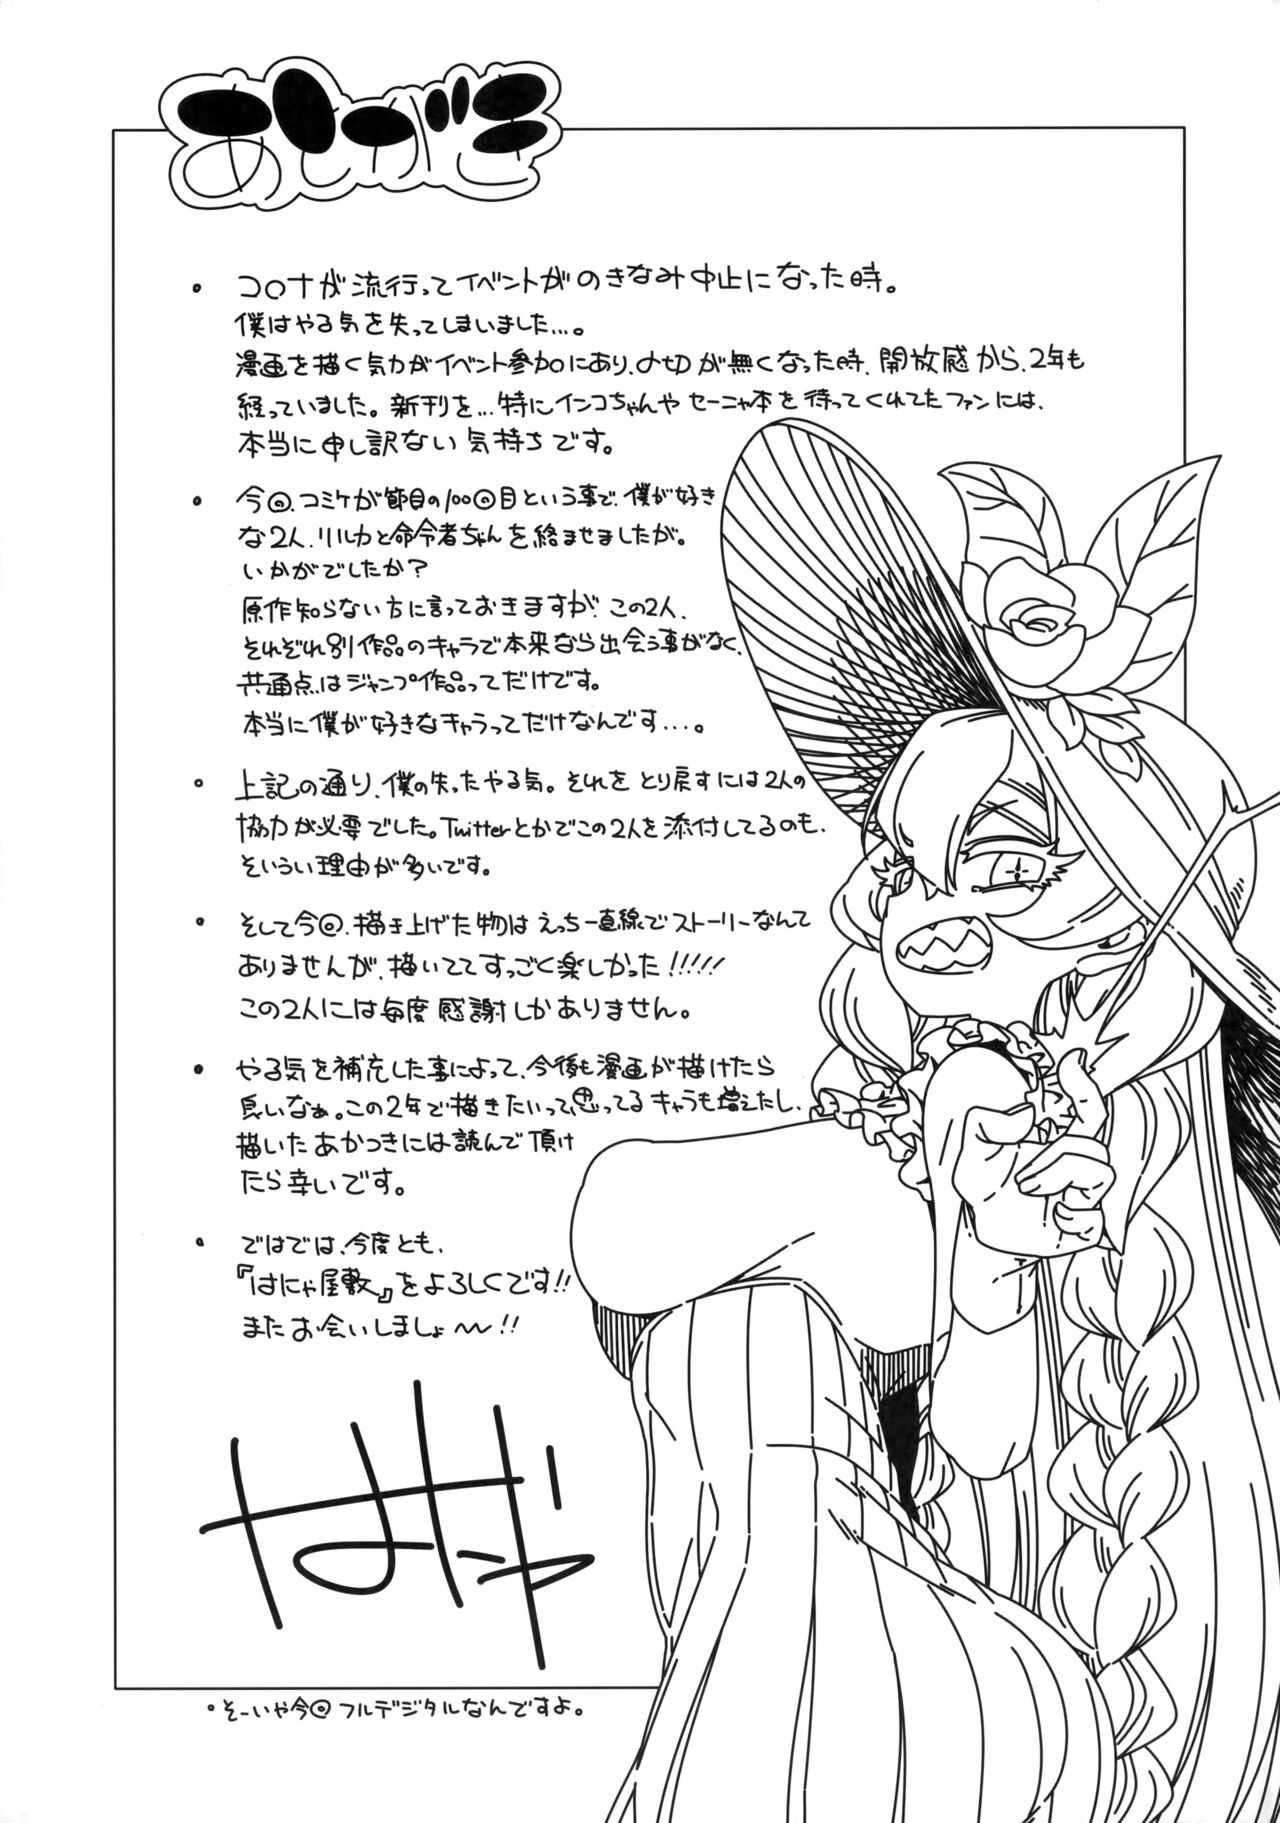 あとがき
・コロナが流行ってイベントがのきなみ中止になった時。
僕はやる気を失ってしまいました…。
漫画を描く気力がイベント参加にあり、〆切が無くなった時、開放感から、2年も
経っていました。新刊を…特にインコちゃんや セーニャ本を待ってくれてたファンには、
本当に申し訳ない気持ちです。
・今回、コミケが節目の100回目という事で、僕が好き
な2人、リルカと命令者ちゃんを絡ませましたが。
いかがでしたか?
原作知らない方に言っておきますが、この2人、
それぞれ別作品のキャラで本来なら出会う事がなく、
共通点はジャンプ作品ってだけです。
本当に僕が好きなキャラってだけなんです…。
・上記の通り、僕の失ったやる気。それをとり戻すには2人の
協力が必要でした。Twitterとかでこの2人を添付してるのも、
そいうい理由が多いです。
・そして今回、描き上げた物はえっち一直線でストーリーなんて
ありませんが、描いててすっごく楽しかった!!!!!
この2人には毎度感謝しかありません。
・やる気を補充した事によって、今後も漫画が描けたら
良いなぁ。この2年で描きたいって思ってるキャラも増えたし、
描いたあかつきには読んで頂け
たら幸いです。
・ではでは、今度とも、
『はにゃ屋敷』をよろしくです!!
またお会いしましょ〜!!
はにゃ
・そーいや今回フルデジタルなんですよ。